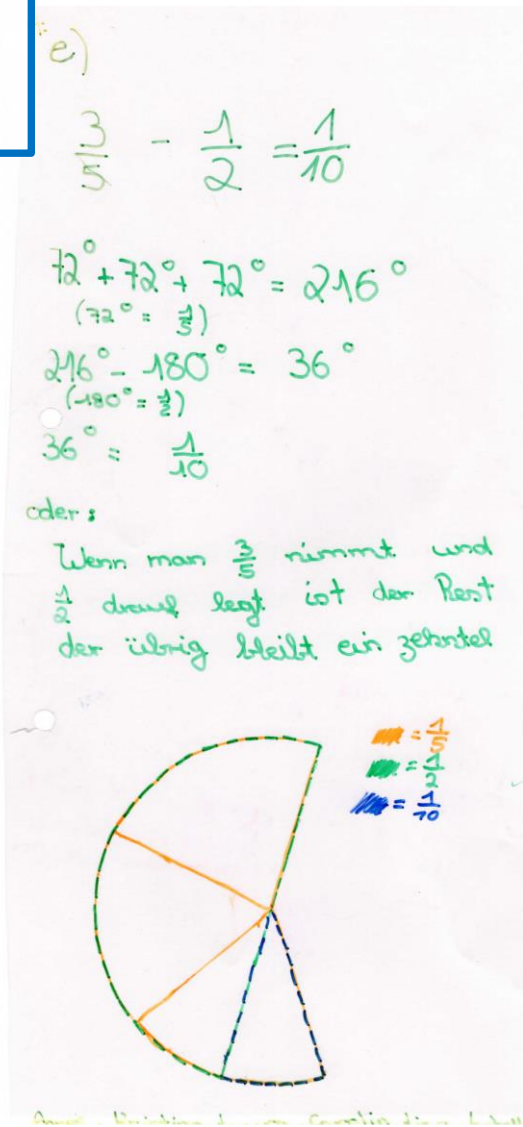 e)
3/5 - 1/2 = 1/10
72° + 72° + 72° = 216°
(72° = 1/5)
216° - 180° = 36°
(180° = 1/2)
36° = 1/10
oder:
Wenn man 3/5 nimmt und
1/2 drauf legt ist der Rest
der übrig bleibt ein zehntel
= 1/5
= 1/2
= 1/10